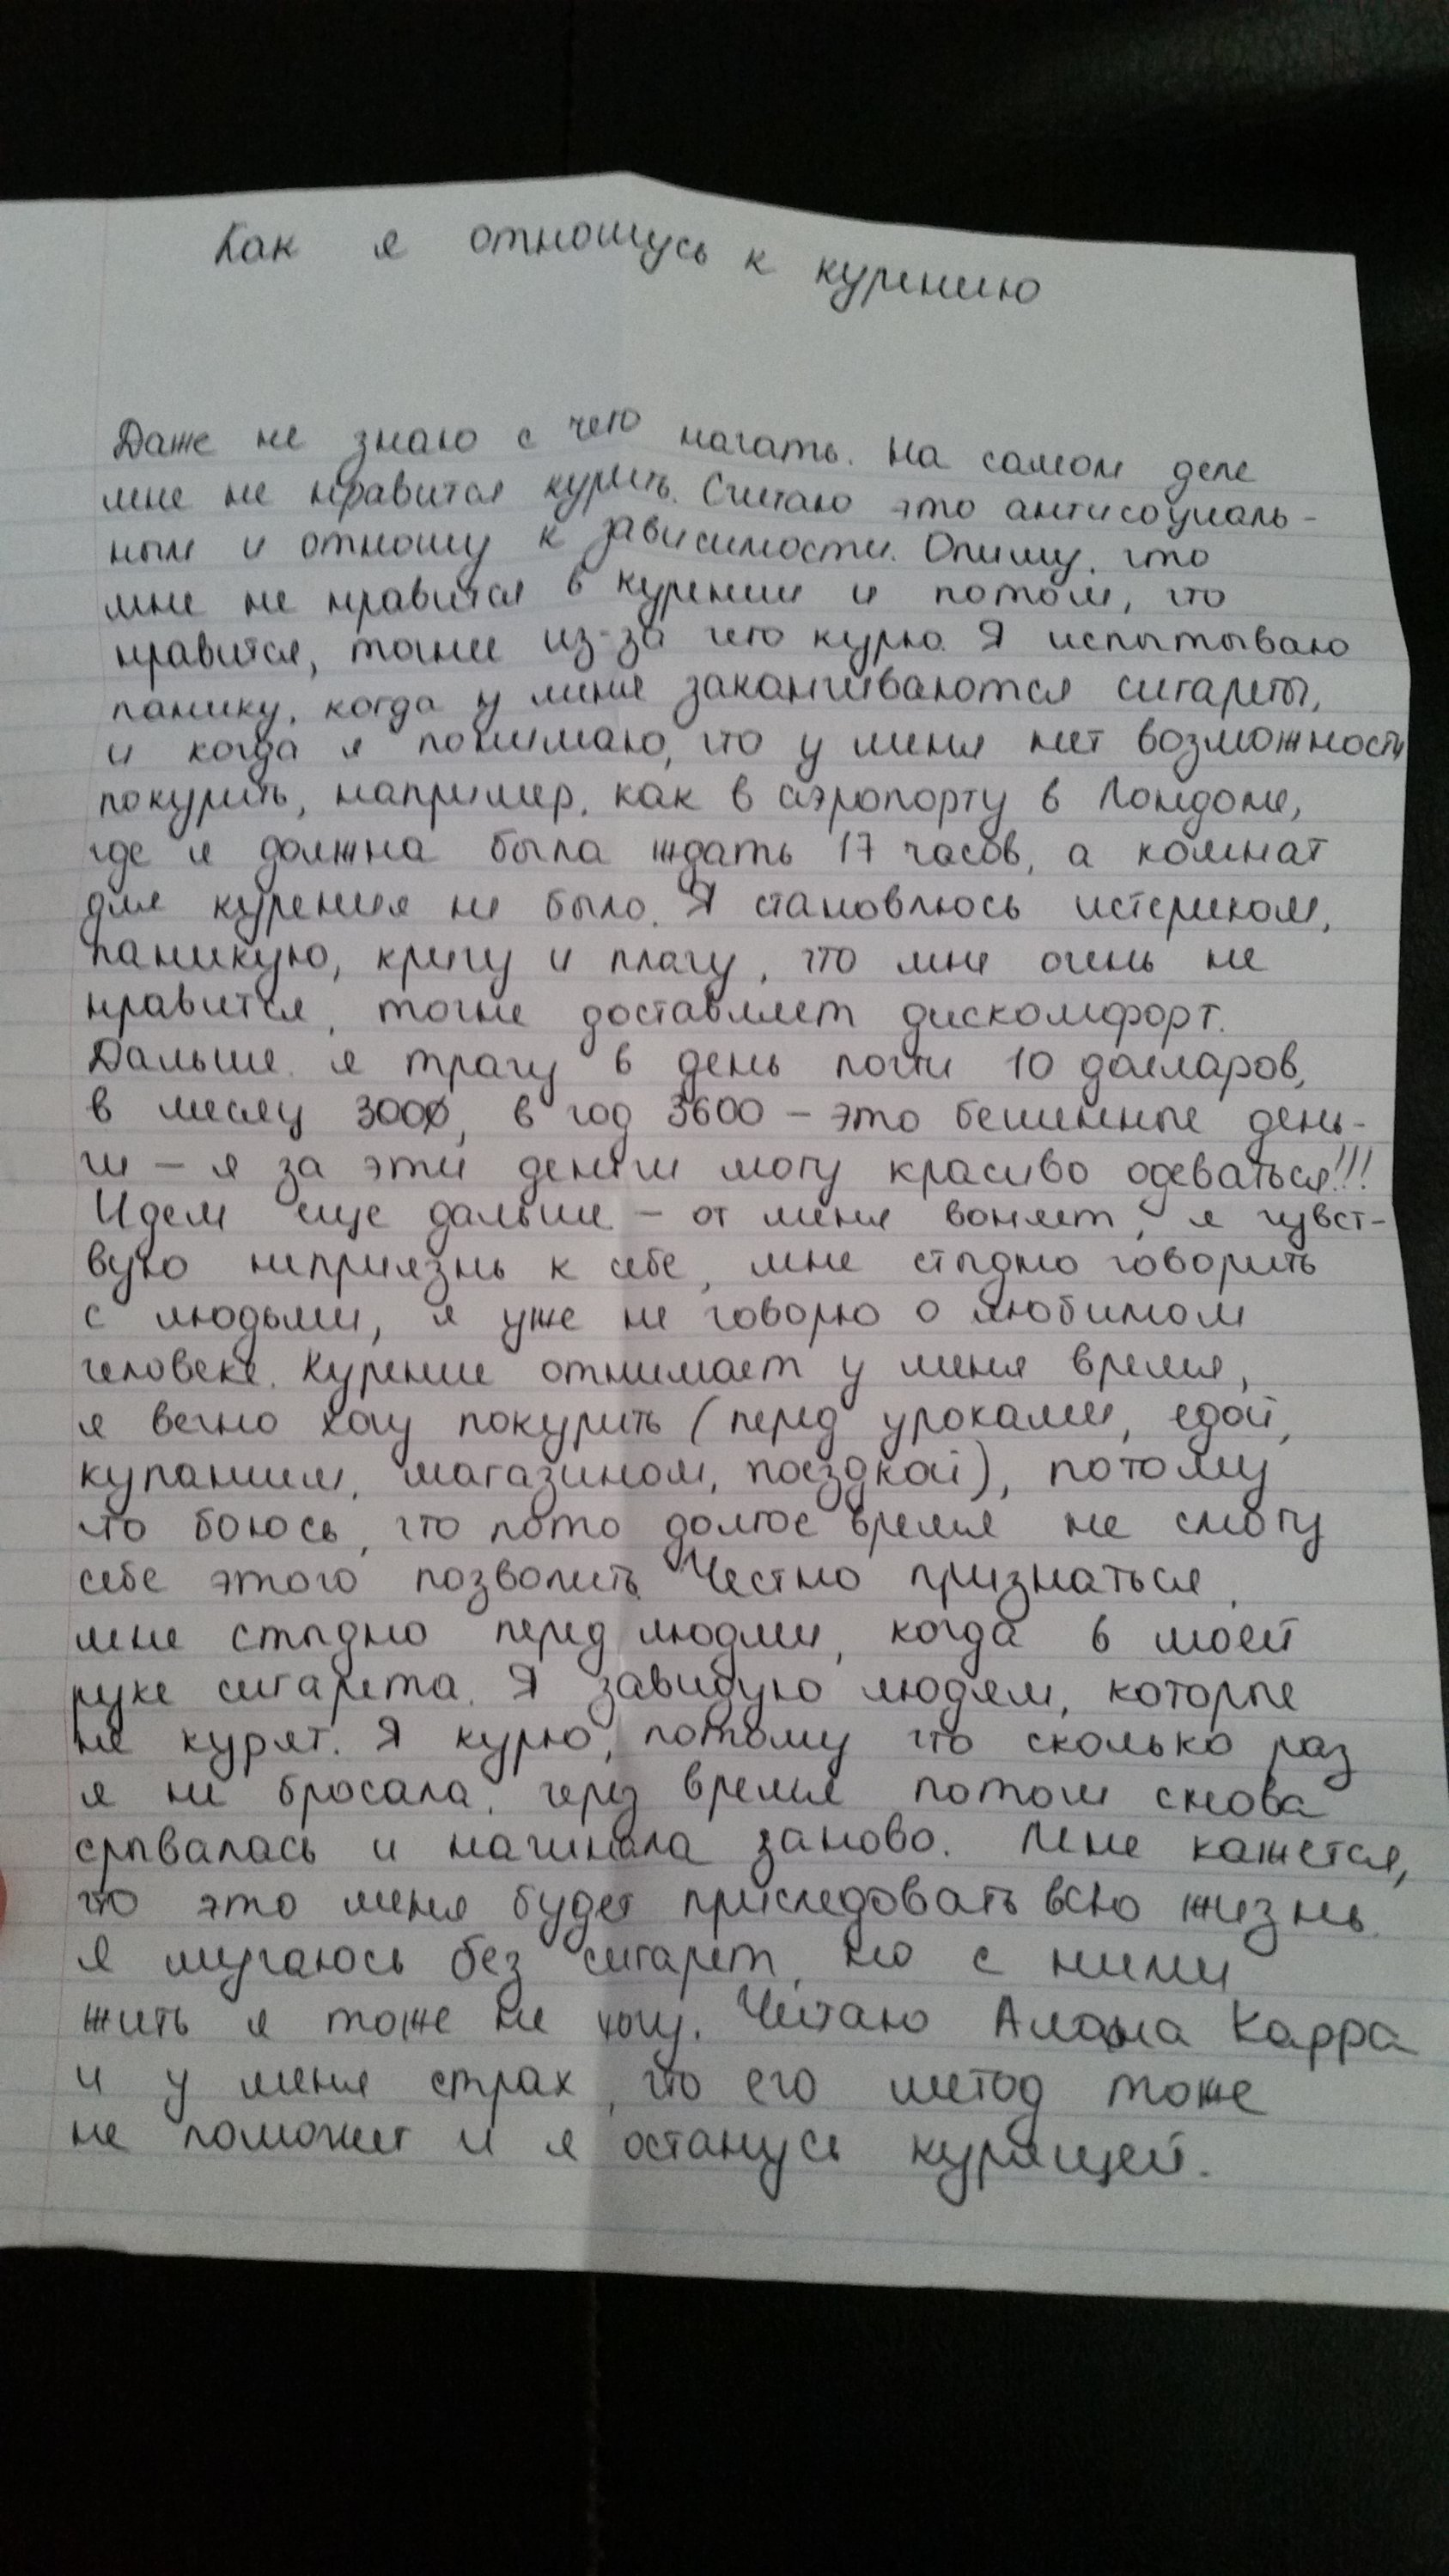 Как я отношусь к курению
Даже не знаю с чего начать. На самом деле
мне не нравится курить. Считаю это антисоциаль-
ным и отношу к зависимости. Опишу, что
мне не нравится в курении и потом, что
нравится, точнее из-за чего курю. Я испытываю
панику, когда у меня заканчиваются сигареты,
и когда я понимаю, что у меня нет возможности
покурить, например, как в аэропорту в Лондоне,
где я должна была ждать 17 часов, а комнат
для курения не было. Я становлюсь истериком,
паникую, кричу и плачу, что мне очень не
нравится, точне доставляет дискомфорт.
Дальше. я трачу в день почти 10 долларов,
в месяц 3000, в год 3600 – это бешенные день-
ги – я за эти деньги могу красиво одеваться!!!
Идем еще дальше – от меня воняет, я чувст-
вую неприязнь к себе, мне стыдно говорить
с людьми, я уже не говорю о любимом
человеке. Курение отнимает у меня время,
я вечно хочу покурить (перед уроками, едой,
купанием, магазином, поездкой), потому
что боюсь, что пото долгое время не смогу
себе этого позволить. Честно признаться,
мне стыдно перед людми, когда в моей
руке сигарета. Я завидую людям, которые
не курят. Я курю, потому что сколько раз
я не бросала, через время потом снова
срывалась и начинала заново. Мне кажется,
что это меня будет приследовать всю жизнь.
Я мучаюсь без сигарет, но с ними
жить я тоже не хочу. Читаю Алана Карра
и у меня страх, что его метод тоже
не поможет и я останусь курящей.